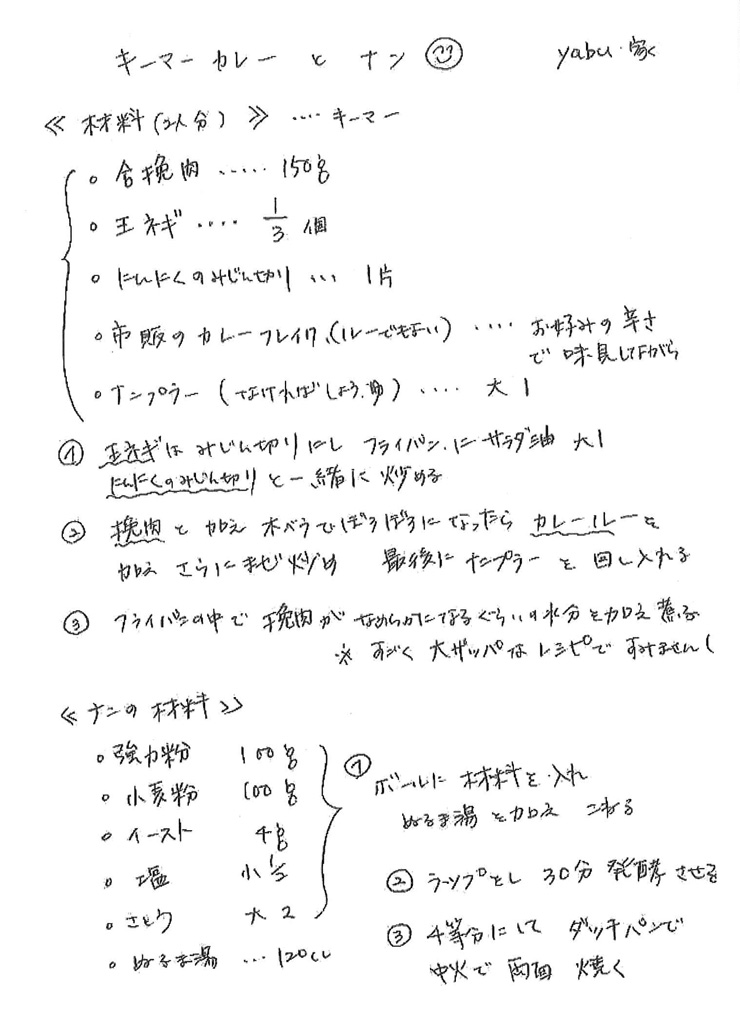 キーマーカレーとナン
yabu.家
≪材料(2人分)≫ ‥‥キーマー
○合挽肉 ‥‥‥ 150g
○玉ネギ ‥‥ 1/3個
○にんにくのみじん切り … 1片
○市販のカレーフレイク(ルーでもよい) ‥‥ お好みの辛さ
で味見しながら
○ナンプラー(なければしょうゆ) ‥‥ 大1
① 玉ネギはみじん切りにしフライパンにサラダ油 大1
にんにくのみじん切りと一緒に炒める
② 挽肉を加え木べラでぼろぼろになったらカレールーを
加えさらにまぜ炒め 最後にナンプラーを回し入れる
③ フライパンの中で挽肉がなめらかになるぐらいの水分を加え煮る
※ すごく大ザッパなレシピですみません!
≪ナンの材料≫
○強力粉 100g
○小麦粉 100g
○イースト 4g
○塩 小
○さとう 大2
○ぬるま湯 …120cc
① ボールに材料を入れ
ぬるま湯を加えこねる
② ラップをし30分発酵させる
③ 4等分にしてダッチパンで
中火で両面焼く